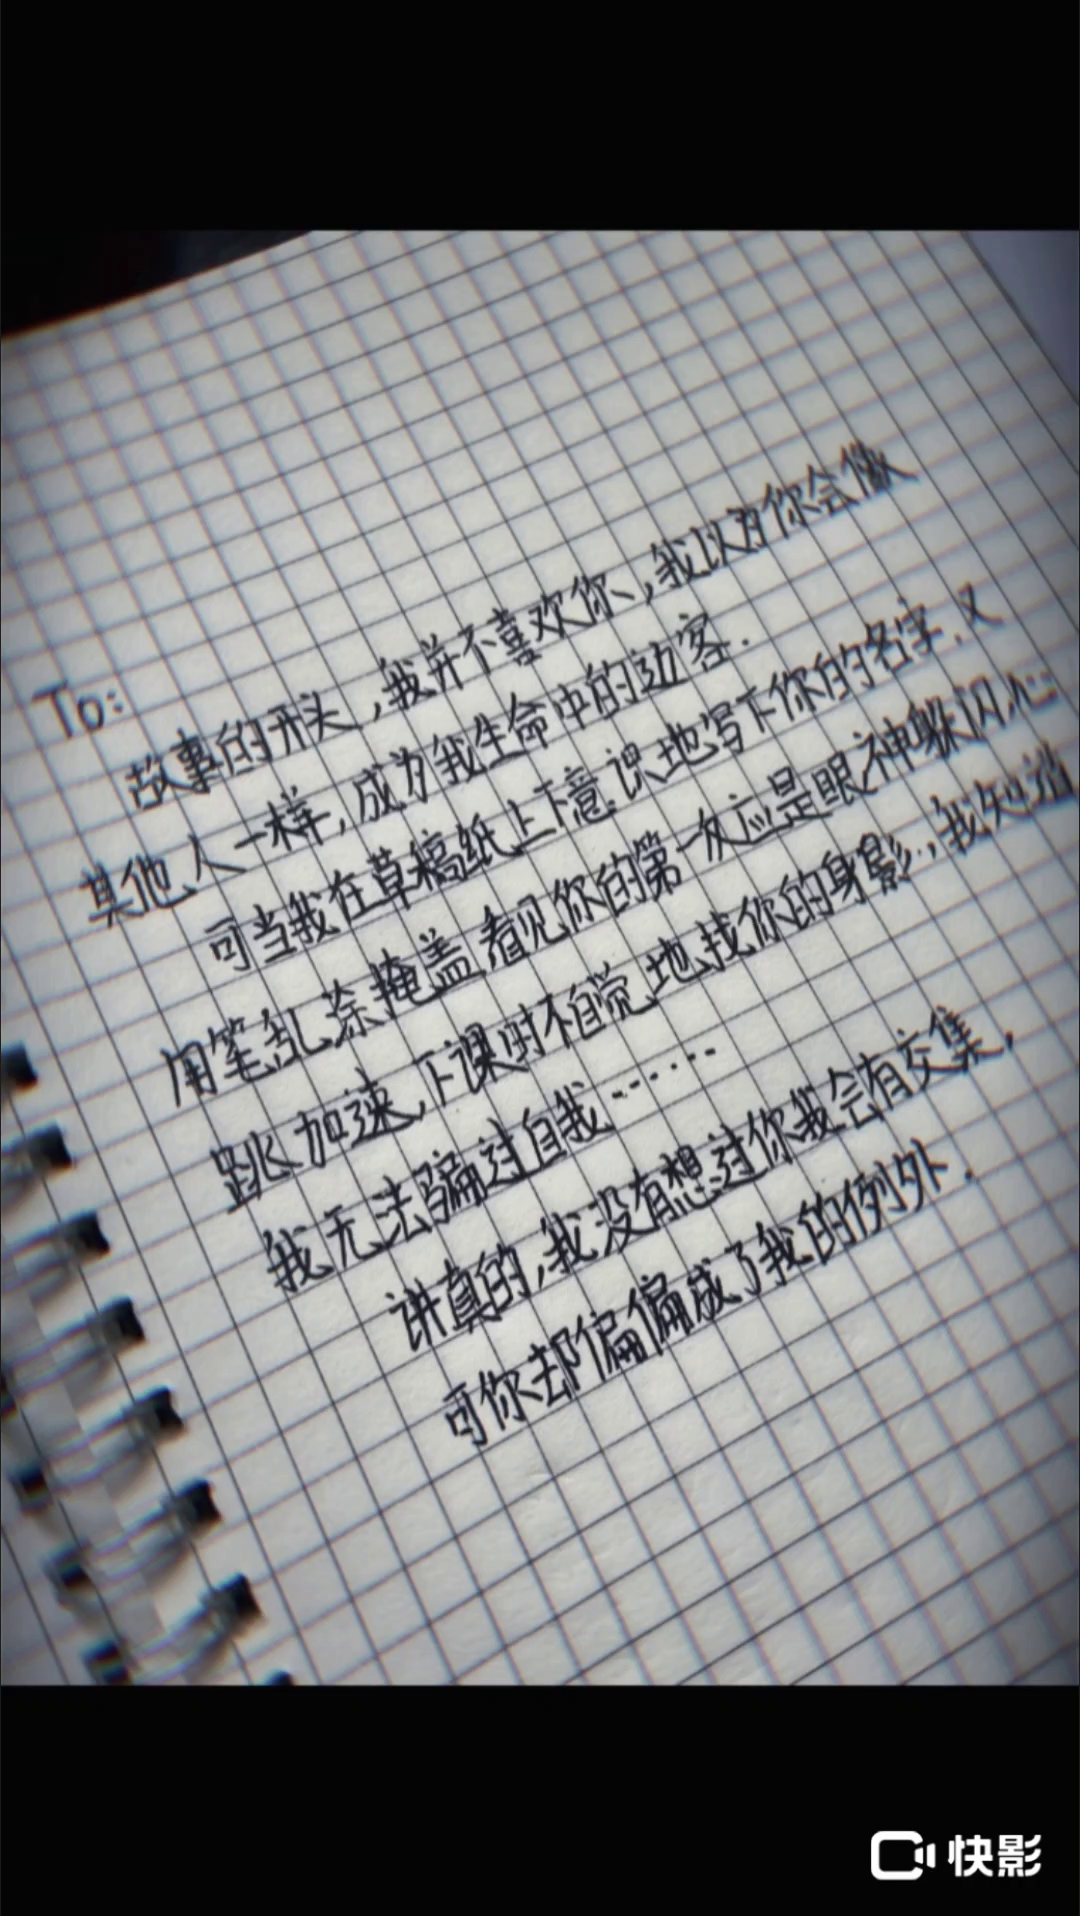 To:
故事的开头,我并不喜欢你,我以为你会像
其他人一样,成为我生命中的边客.
可当我在草稿纸上下意识地写下你的名字,又
用笔乱涂掩盖,看见你的第一反应是眼神躲闪,心
跳加速,下课时不自觉地找你的身影..,我知道
我无法骗过自我......
讲真的,我没有想过你我会有交集,
可你却偏偏成了我的例外.
快影